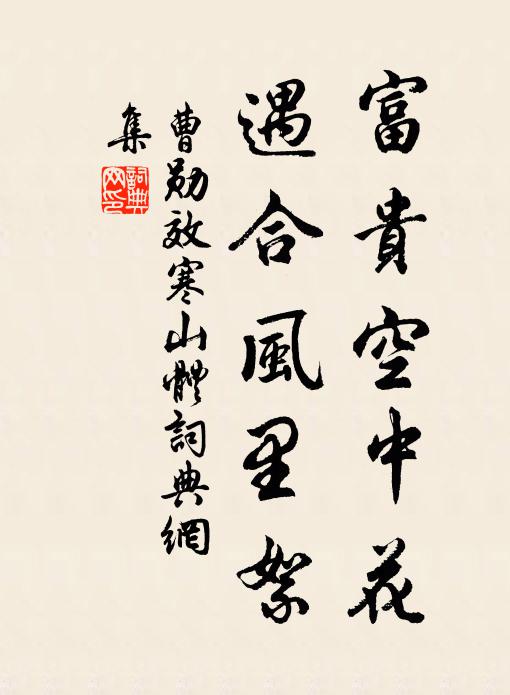 富貴空中花
遇合風里絮
曹勛效寒山體詞典網
集
詞典網印